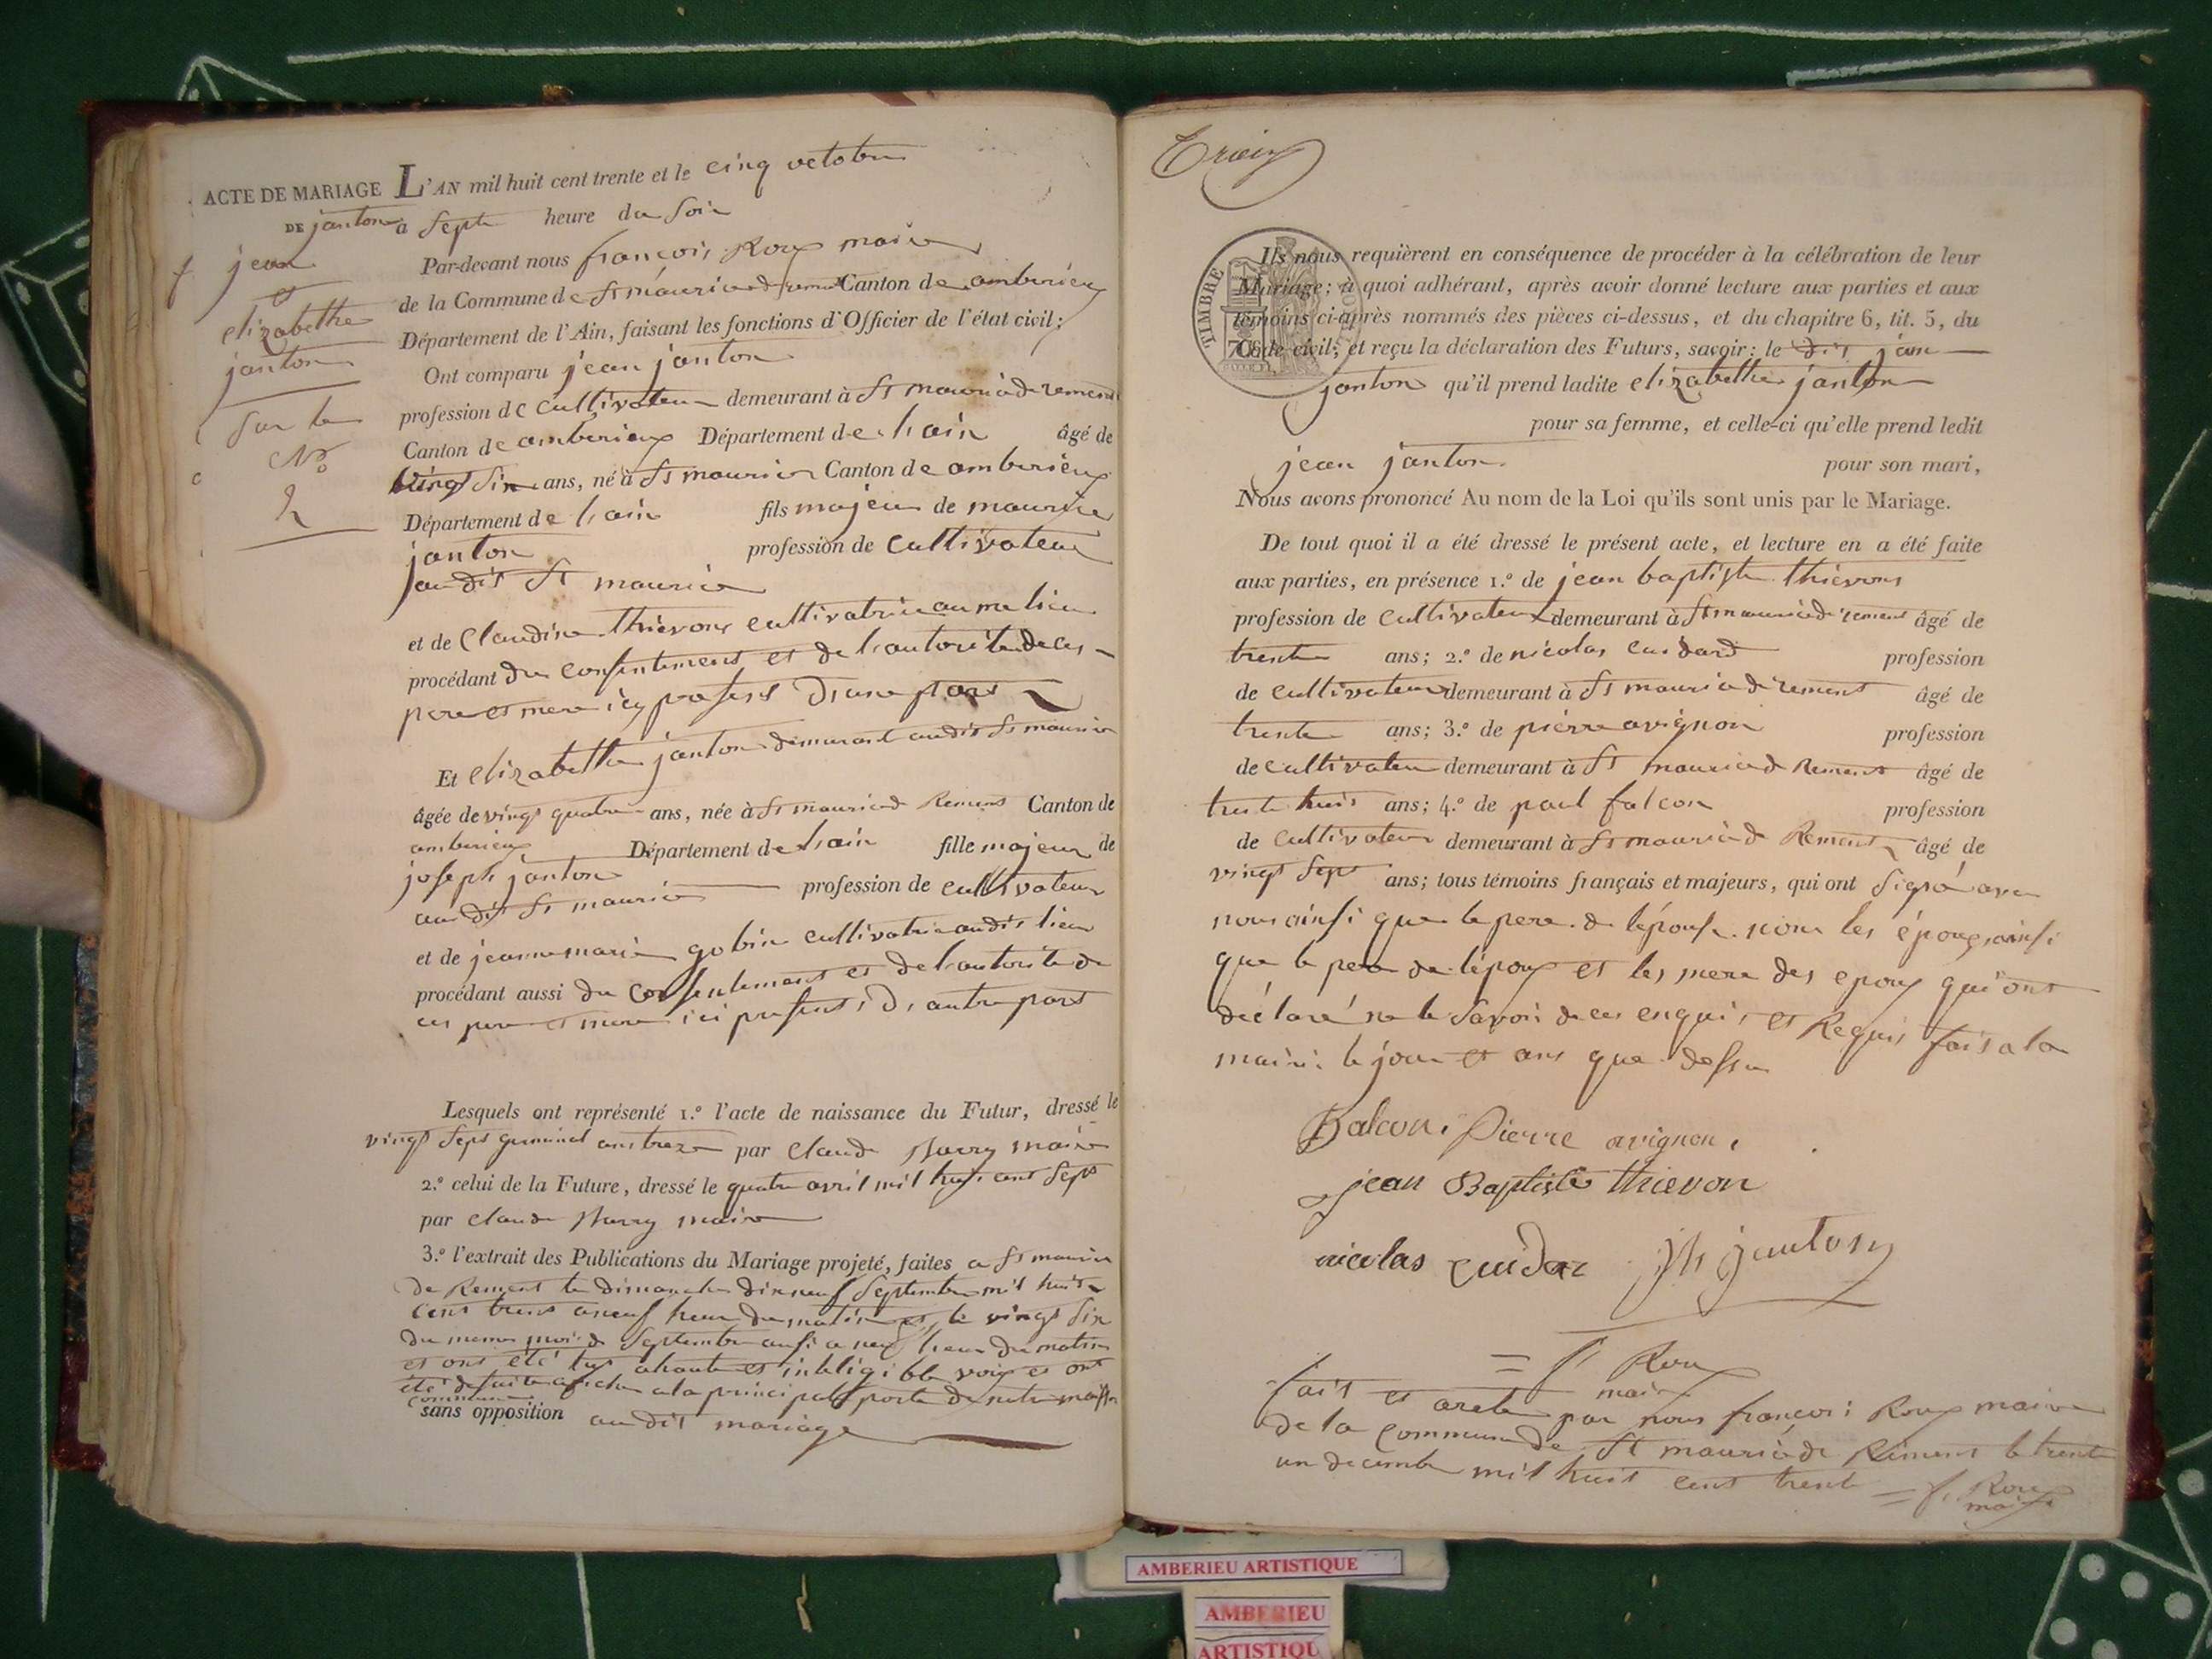 ACTE DE MARIAGE
DE janton
jean
et
elizabethe
janton
Sur le
No
2
L'AN mil huit cent trente et le cinq octobre
a sept heure du soir
Par-devant nous françois Roux maire
de la Commune de St mauricederemens Canton de amberieux
Département de l'Ain, faisant les fonctions d'Officier de l'état civil;
Ont comparu jean janton
profession de cultivateur demeurant à St mauricederemens
Canton de amberieux Département de lain âgé de
vingt six ans, né à St maurice Canton de amberieux
Département de lain fils majeur de maurice
janton profession de cultivateur
au dit St maurice
et de Claudine thievons cultivatrice au me lieu
procédant du consentement et de lautorité de ces
pere et mere icy presens d'une part
Et elizabethe janton demurant audit St maurice
âgée de vingt quatre ans, née à St maurice de Remens Canton de
amberieux Département de lain fille majeur de
joseph janton profession de cultivateur
au dit St maurice
et de jeanne marie gobin cultivatrice audit lieu
procédant aussi du consentement et de lautorité de
ces pere et mere ici presents d'autre part
Lesquels ont représenté 1.º l'acte de naissance du Futur, dressé le
vingt sept germinal ans treze par claude maire
2.º celui de la Future, dressé le quatre avril mil huit cent sept
par claude maire
3.º l'extrait des Publications du Mariage projeté, faites a St maurice
de Remens le dimanche dixneuf septembre mil huit
cent trente a neuf heure du matin et le vingt six
du meme mois de septembre ausi a neuf heure du matin
et ont été lus ahaute et inteligible voix et ont
été de suite afficher a la principale porte de notre maison
commune
sans opposition au dit mariage
Ils nous requièrent en conséquence de procéder à la célébration de leur
Mariage; à quoi adhérant, après avoir donné lecture aux parties et aux
témoins ci-après nommés des pièces ci-dessus, et du chapitre 6, tit. 5, du
Code civil; et reçu la déclaration des Futurs, savoir: le dit jean
TIMBRE
janton qu'il prend ladite elizabethe janton
pour sa femme, et celle-ci qu'elle prend ledit
jean janton pour son mari,
Nous avons prononcé Au nom de la Loi qu'ils sont unis par le Mariage.
De tout quoi il a été dressé le présent acte, et lecture en a été faite
aux parties, en présence 1.º de jean baptiste thievons
profession de cultivateur demeurant à St maurice de remens âgé de
trente ans; 2.º de nicolas cuidard profession
de cultivateur demeurant à St maurice de remens âgé de
trente ans; 3.º de pierre avignon profession
de cultivateur demeurant à St maurice de Remens âgé de
trente huit ans; 4.º de paul falcon profession
de cultivateur demeurant à St maurice de Remens âgé de
vingt sept ans; tous témoins français et majeurs, qui ont signé avec
nous ainsi que le pere de lépouse. non les époux ainsi
que le pere de lépoux et les mere des epoux qui ont
déclaré ne le savoir de ces enquis et Requis fait a la
mairi le jour et ans que dessu
Balcon. Pierre avignon.
jean Baptiste thievon
nicolas cuidar jh janton
= f Roux
maire
fait et areté par nous françois Roux maire
de la commune de St maurice de Remens le trente
un decembre mil huit cent trente = f. Roux
maire
AMBERIEU ARTISTIQUE
AMBERIEU
ARTISTIQU